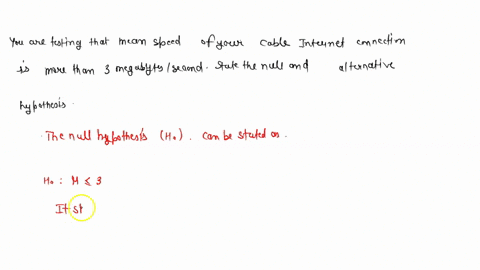 You are testing that mean speed of your Cable Internet connection
is more than 3 megabytes/second. State the null and alternative
hypothesis.
The null hypothesis (H₀). Can be stated as.
H₀ : M ≤ 3
It st